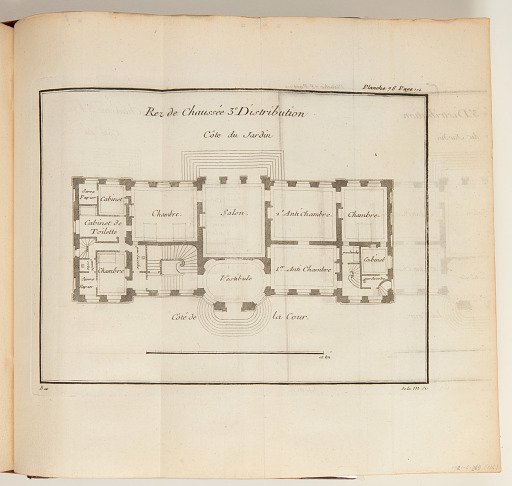 Planche 76 Page
Rez de Chaussée 3e Distribution
Côté du Jardin
Cabinet
Chambre
Salon
2e Anti Chambre
Chambre
Cabinet de
Toilette
Chambre
Vestibule
1re Anti Chambre
Cabinet
Côté de la Cour